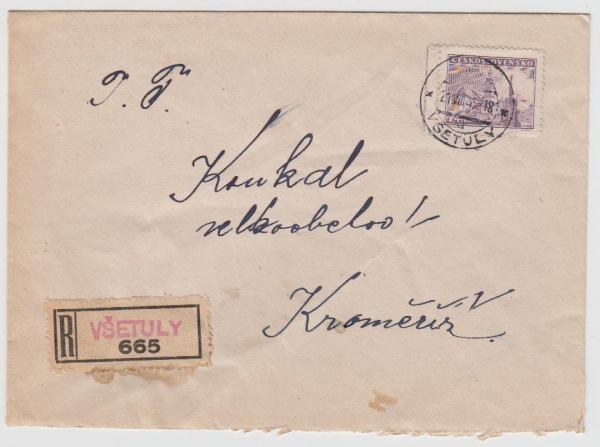 ČESKOSLOVENSKO
VŠETULY
P. T.
Koukal
velkoobchod
Kroměříž.
R VŠETULY
665